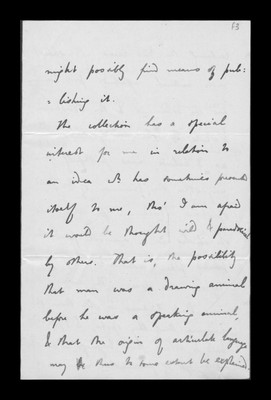 53
might possibly find means of pub=
=lishing it.
The collection has a special
interest for me in relation to
an idea wh has sometimes presented
itself to me, tho' I am afraid
it would be thought wild & paradoxical
by others. That is, the possibility
that man was a drawing animal
before he was a speaking animal,
& that the origin of articulate language
may be thus to some extent be explained.